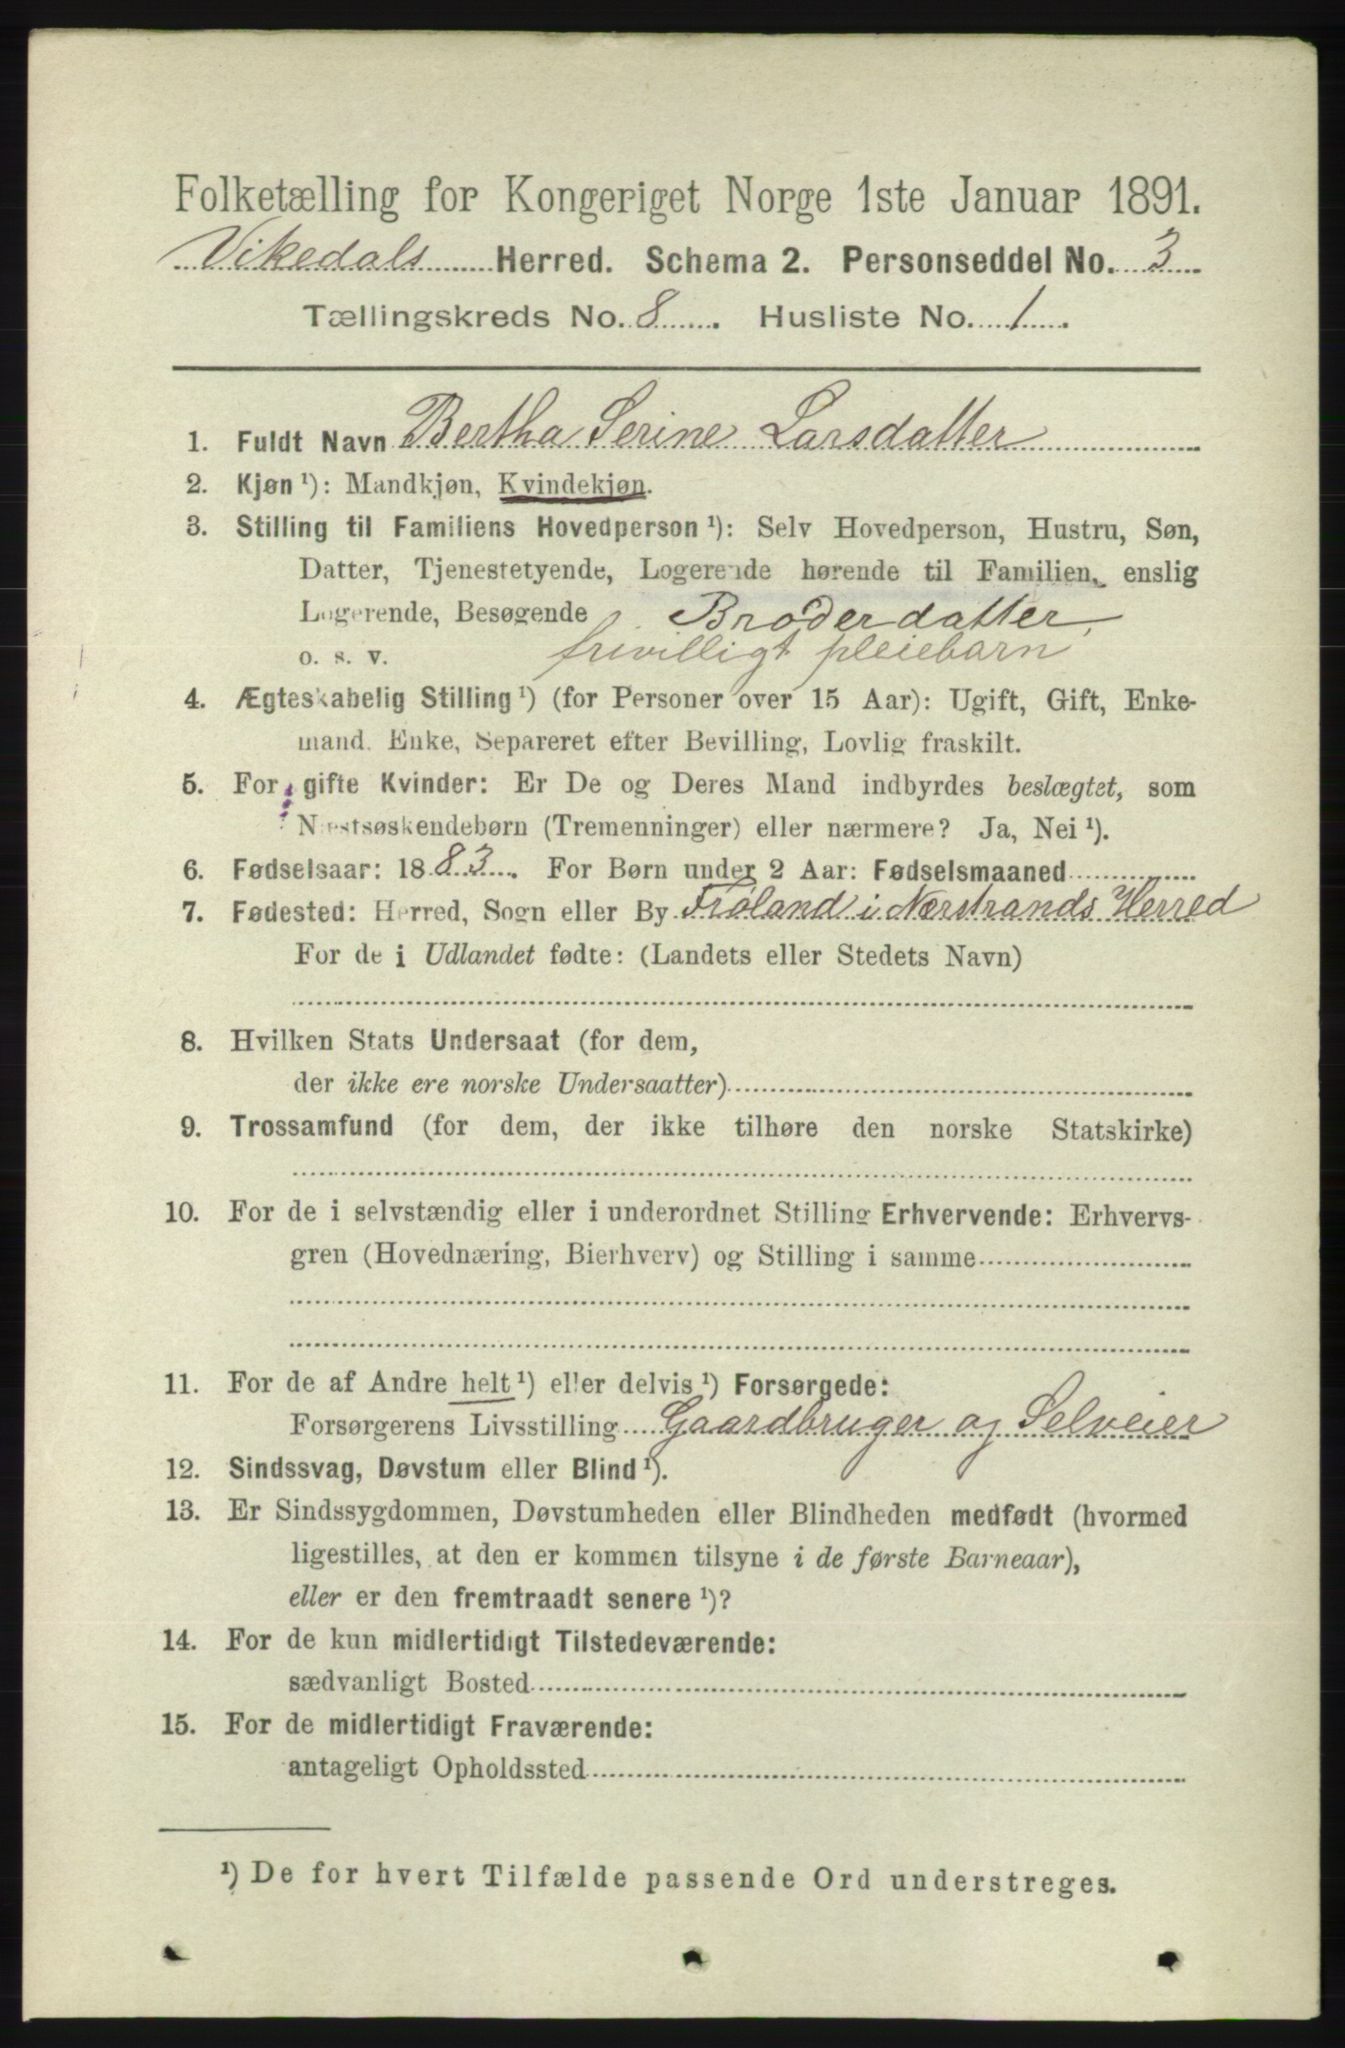 Folketælling for Kongeriget Norge 1ste Januar 1891.
Vikedals Herred. Schema 2. Personseddel No. 3
Tællingskreds No. 8. Husliste No. 1.
1. Fuldt Navn Bertha Serine Larsdatter
2. Kjøn ¹): Mandkjøn, Kvindekjøn.
3. Stilling til Familiens Hovedperson ¹): Selv Hovedperson, Hustru, Søn,
Datter, Tjenestetyende, Logerende hørende til Familien, enslig
Logerende, Besøgende Broderdatter,
o. s. v. frivilligt pleiebarn
4. Ægteskabelig Stilling ¹) (for Personer over 15 Aar): Ugift, Gift, Enke-
mand, Enke, Separeret efter Bevilling, Lovlig fraskilt.
5. For gifte Kvinder: Er De og Deres Mand indbyrdes beslægtet, som
Næstsøskendebørn (Tremenninger) eller nærmere? Ja, Nei ¹).
6. Fødselsaar: 1883. For Børn under 2 Aar: Fødselsmaaned
7. Fødested: Herred, Sogn eller By Frøland i Nærstrands Herred
For de i Udlandet fødte: (Landets eller Stedets Navn)
8. Hvilken Stats Undersaat (for dem,
der ikke ere norske Undersaatter)
9. Trossamfund (for dem, der ikke tilhøre den norske Statskirke)
10. For de i selvstændig eller i underordnet Stilling Erhvervende: Erhvervs-
gren (Hovednæring, Bierhverv) og Stilling i samme
11. For de af Andre helt ¹) eller delvis ¹) Forsørgede:
Forsørgerens Livsstilling Gaardbruger og Selveier
12. Sindssvag, Døvstum eller Blind ¹).
13. Er Sindssygdommen, Døvstumheden eller Blindheden medfødt (hvormed
ligestilles, at den er kommen tilsyne i de første Barneaar),
eller er den fremtraadt senere ¹)?
14. For de kun midlertidigt Tilstedeværende:
sædvanligt Bosted
15. For de midlertidigt Fraværende:
antageligt Opholdssted
¹) De for hvert Tilfælde passende Ord understreges.